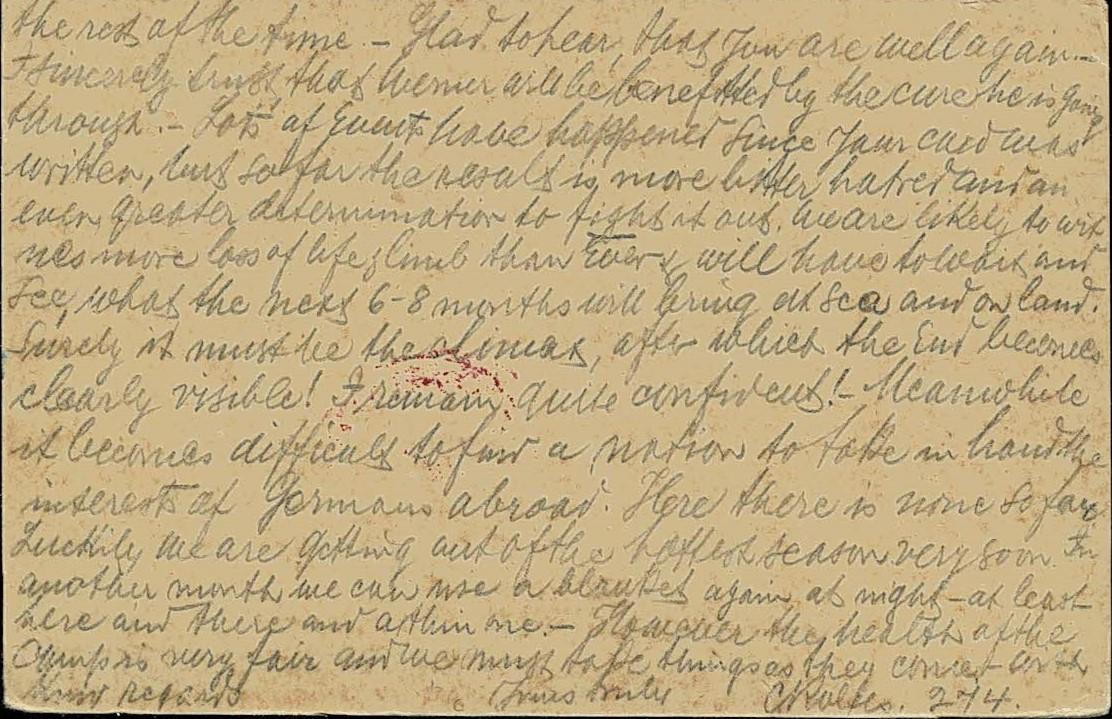 the rest of the time. - Glad to hear, that you are well again. -
I sincerely trust, that Werner will be benefitted by the cure he is going
through. - Lots of Events have happened since your card was
written, but so far the result is more bitter hatred and an
even greater determination to fight it out. We are likely to wit
nes more loss of life & limb than Ever & will have to wait and
see, what the next 6-8 months will bring at sea and on land.
Surely it must be the climax, after which the End becomes
clearly visible! I remain quite confident! - Meanwhile
it becomes difficult to find a nation to take in hand the
interests of Germans abroad. Here there is none so far.
Luckily we are getting out of the hottest season very soon. In
another month we can use a blanket again at night - at least
here and there and a thin one. - However the health of the
Camp is very fair and we must take things as they come. - With
kind regards Yours truly CRolfes. 274.